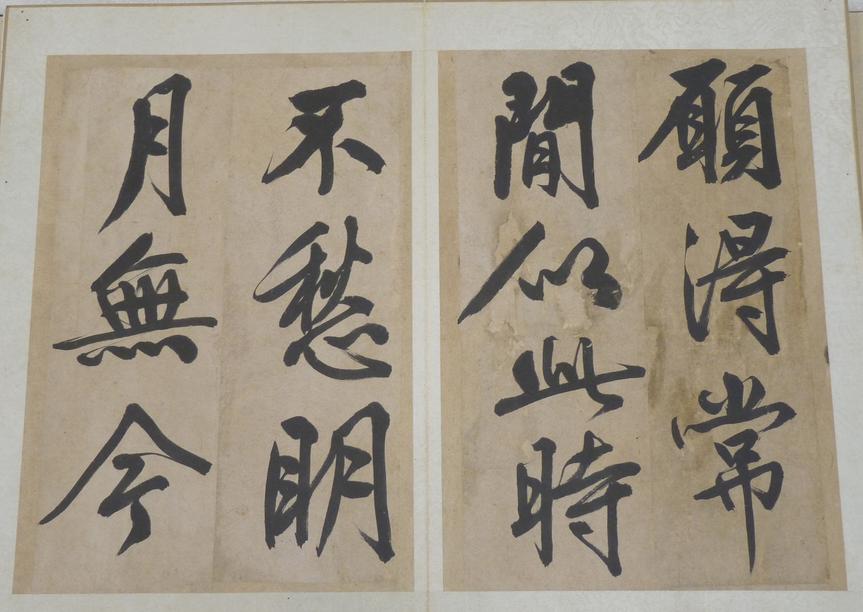 願得常
閒似此時
不愁明
月無今